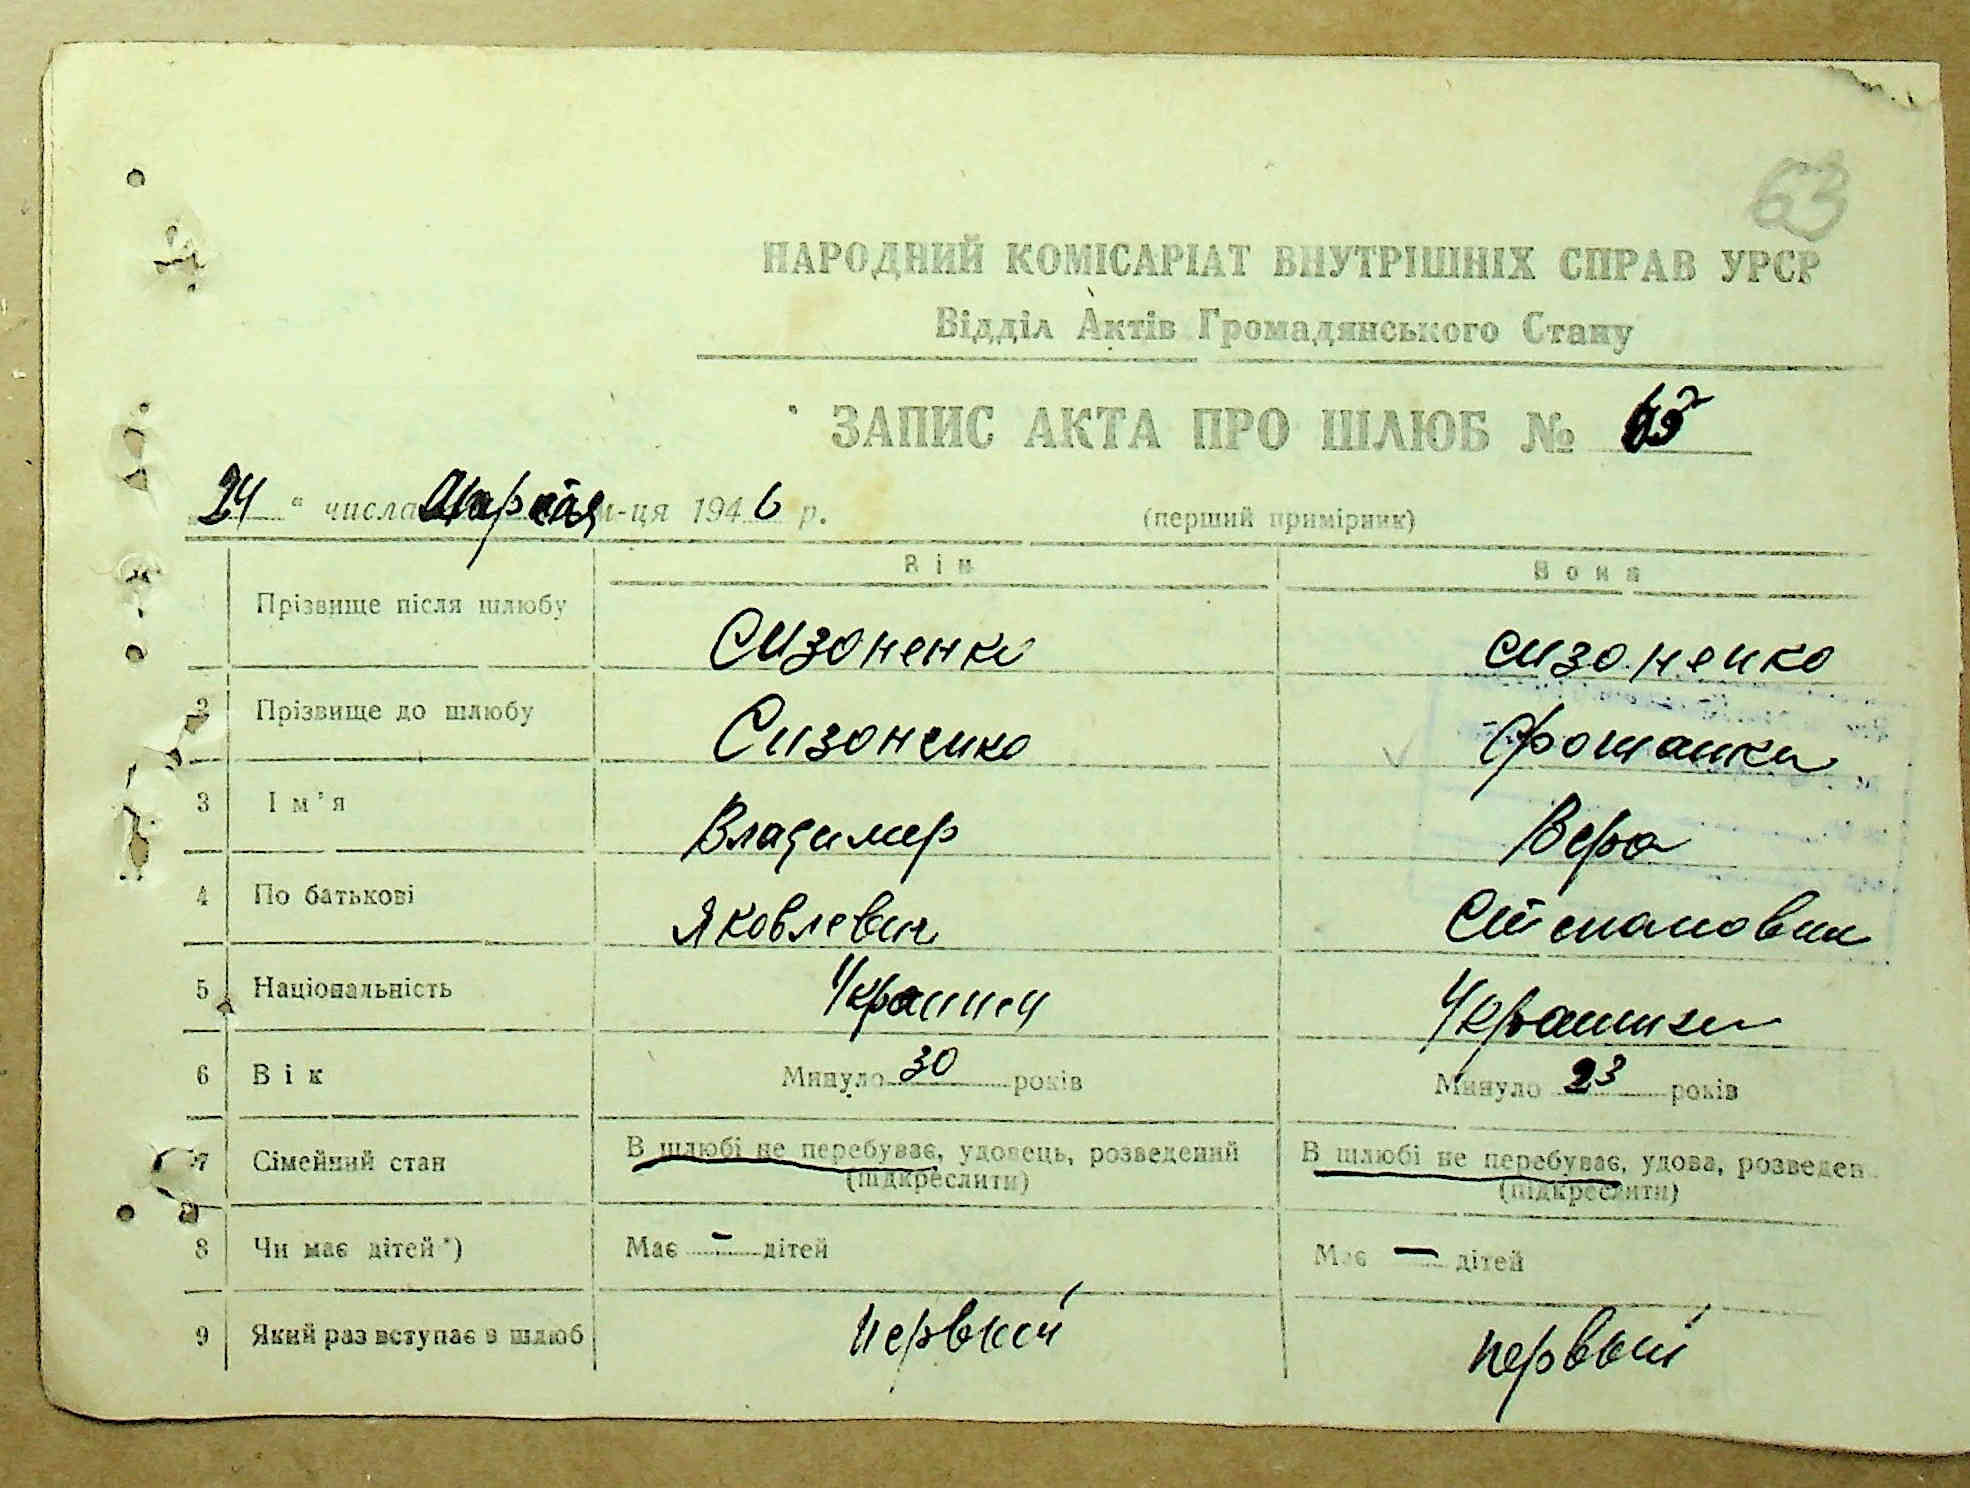 63
НАРОДНИЙ КОМІСАРІАТ ВНУТРІШНІХ СПРАВ УРСР
Відділ Актів Громадянського Стану
ЗАПИС АКТА ПРО ШЛЮБ №
24 " числа Апреля м-ця 1946 р. (перший примірник)
Він Вона
Прізвище після шлюбу Сизоненко Сизоненко
2 Прізвище до шлюбу Сизоненко
3 Ім'я Владимир Вера
4 По батькові Яковлевич Степановна
5 Національність Украинец Украинка
6 Вік Минуло 30 років Минуло 23 років
7 Сімейний стан В шлюбі не перебуває, удовець, розведений В шлюбі не перебуває, удова, розведен
(підкреслити) (підкреслити)
8 Чи має дітей*) Має - дітей Має - дітей
9 Який раз вступає в шлюб первый первый